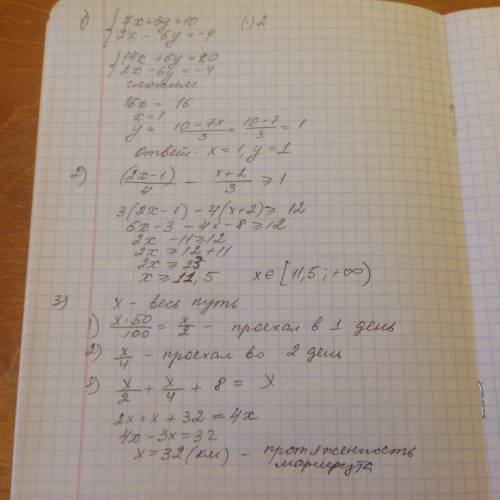 1) { 7x+3y=10 (·)2
2x - 6y = -4
{ 14x + 6y = 20
2x - 6y = -4
сложим
16x = 16
x = 1
y = (10-7x)/3 = (10-7)/3 = 1
ответ: x = 1, y = 1
2) (2x-1)/4 - (x+2)/3 ⩾ 1
3(2x-1) - 4(x+2) ⩾ 12
6x - 3 - 4x - 8 ⩾ 12
2x - 11 ⩾ 12
2x ⩾ 12 + 11
2x ⩾ 23
x ⩾ 11,5 x ∈ [11,5; +∞)
3) x - весь путь
1) (x·50)/100 = x/2 - проехал в 1 день
2) x/4 - проехал во 2 день
3) x/2 + x/4 + 8 = x
2x + x + 32 = 4x
4x - 3x = 32
x = 32 (км) - протяженность
маршрута